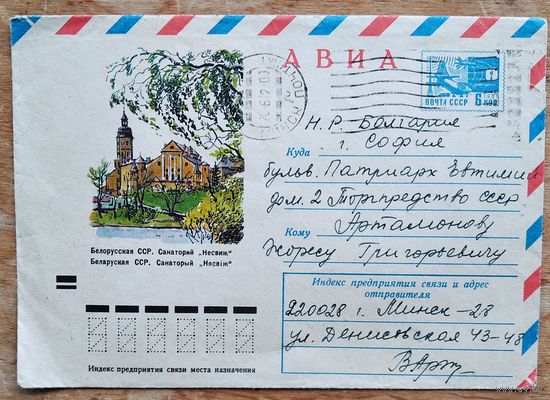 АВИА
ПОЧТА СССР 6 КОП
Н.Р. Болгария
Куда г. София
бульв. Патриарх Евтимии
дом. 2 Торгпредство СССР
Кому Артамонову
Жоресу Григорьевичу
Белорусская ССР. Санаторий „Несвиж“
Беларуская ССР. Санаторый „Нясвіж“
Индекс предприятия связи и адрес отправителя
220028 г. Минск-28
ул. Денисовская 43-48
ВАрт
Индекс предприятия связи места назначения